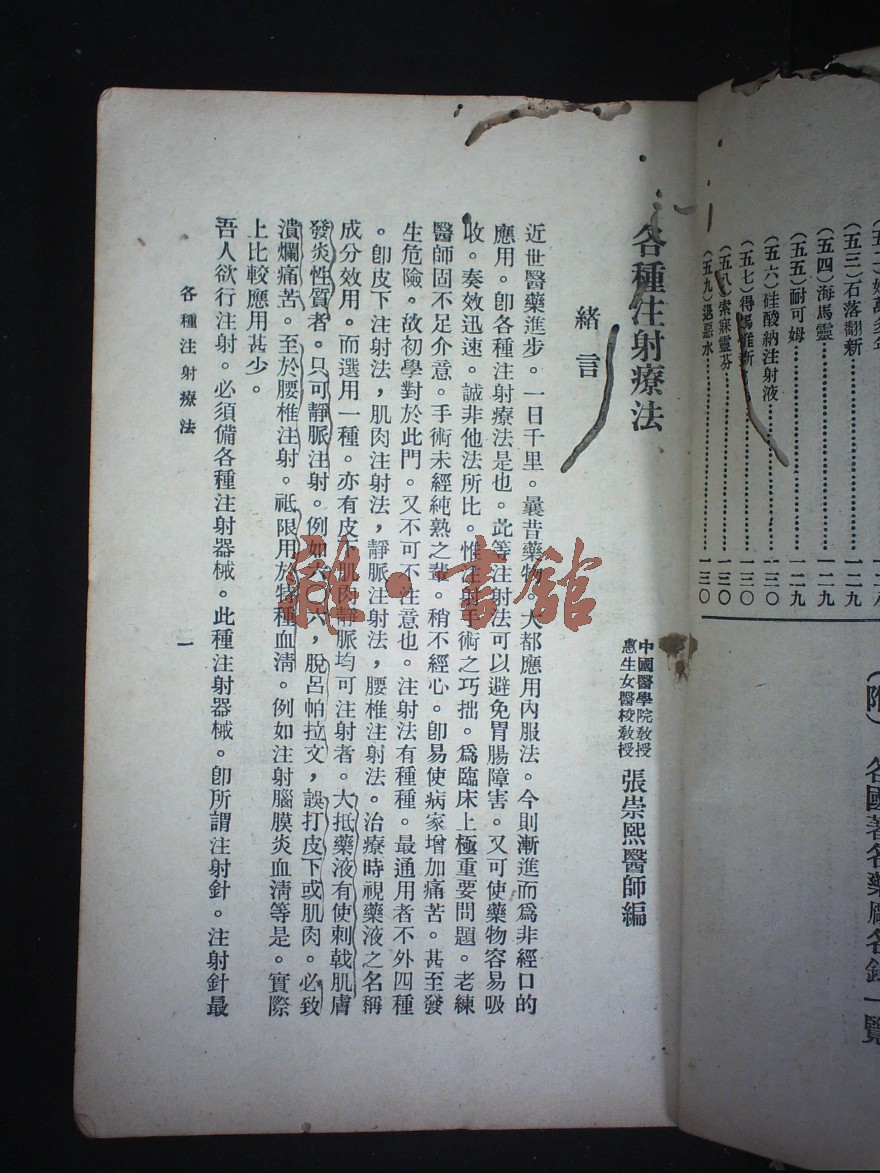 (五三)石落翻新……一二九
(五四)海馬靈……一二九
(五五)耐可姆……一二九
(五六)硅酸納注射液……一三〇
(五八)索寐靈芬……一三〇
(五九)退惡水……一三〇
(附) 各國著名藥廠名錄一覽
各種注射療法
中國醫學院教授
惠生女醫校教授
張崇熙醫師編
緒言
近世醫藥進步。一日千里。曩昔藥物。大都應用內服法。今則漸進而爲非經口的
應用。卽各種注射療法是也。此等注射法可以避免胃腸障害。又可使藥物容易吸
收。奏效迅速。誠非他法所比。惟注射手術之巧拙。爲臨床上極重要問題。老練
醫師固不足介意。手術未經純熟之輩。稍不經心。卽易使病家增加痛苦。甚至發
生危險。故初學對於此門。又不可不注意也。注射法有種種。最通用者不外四種
。卽皮下注射法，肌肉注射法，靜脈注射法，腰椎注射法。治療時視藥液之名稱
成分效用。而選用一種。亦有皮下肌肉靜脈均可注射者。大抵藥液有使刺戟肌膚
發炎性質者。只可靜脈注射。例如六〇六，脫呂帕拉文，誤打皮下或肌肉。必致
潰爛痛苦。至於腰椎注射。祇限用於特種血淸。例如注射腦膜炎血淸等是。實際
上比較應用甚少。
吾人欲行注射。必須備各種注射器械。此種注射器械。卽所謂注射針。注射針最
各種注射療法
一
雜·書館